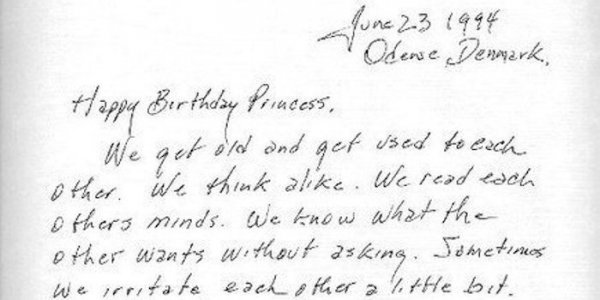 June 23 1994
Odense, Denmark.
Happy Birthday Princess,
We get old and get used to each
other. We think alike. We read each
others minds. We know what the
other wants without asking. Sometimes
we irritate each other a little bit.